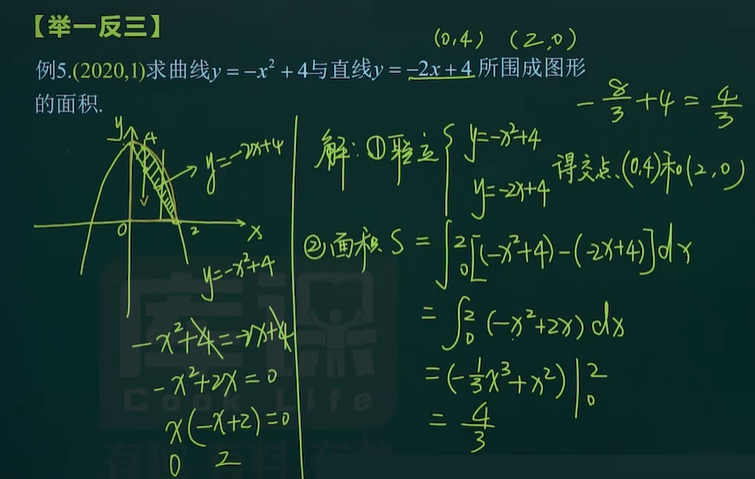 【举一反三】
(0,4) (2,0)
例5.(2020,1)求曲线y=-x²+4与直线y=-2x+4所围成图形
的面积.
-8/3+4=4/3
y 4
y=-2x+4
0 2 x
y=-x²+4
-x²+4=-2x+4
-x²+2x=0
x(-x+2)=0
0 2
解:①联立{y=-x²+4
y=-2x+4 得交点(0,4)和(2,0)
②面积S=∫₀²[(-x²+4)-(-2x+4)]dx
=∫₀²(-x²+2x)dx
=(-1/3x³+x²)|₀²
=4/3
库课
Cook Life